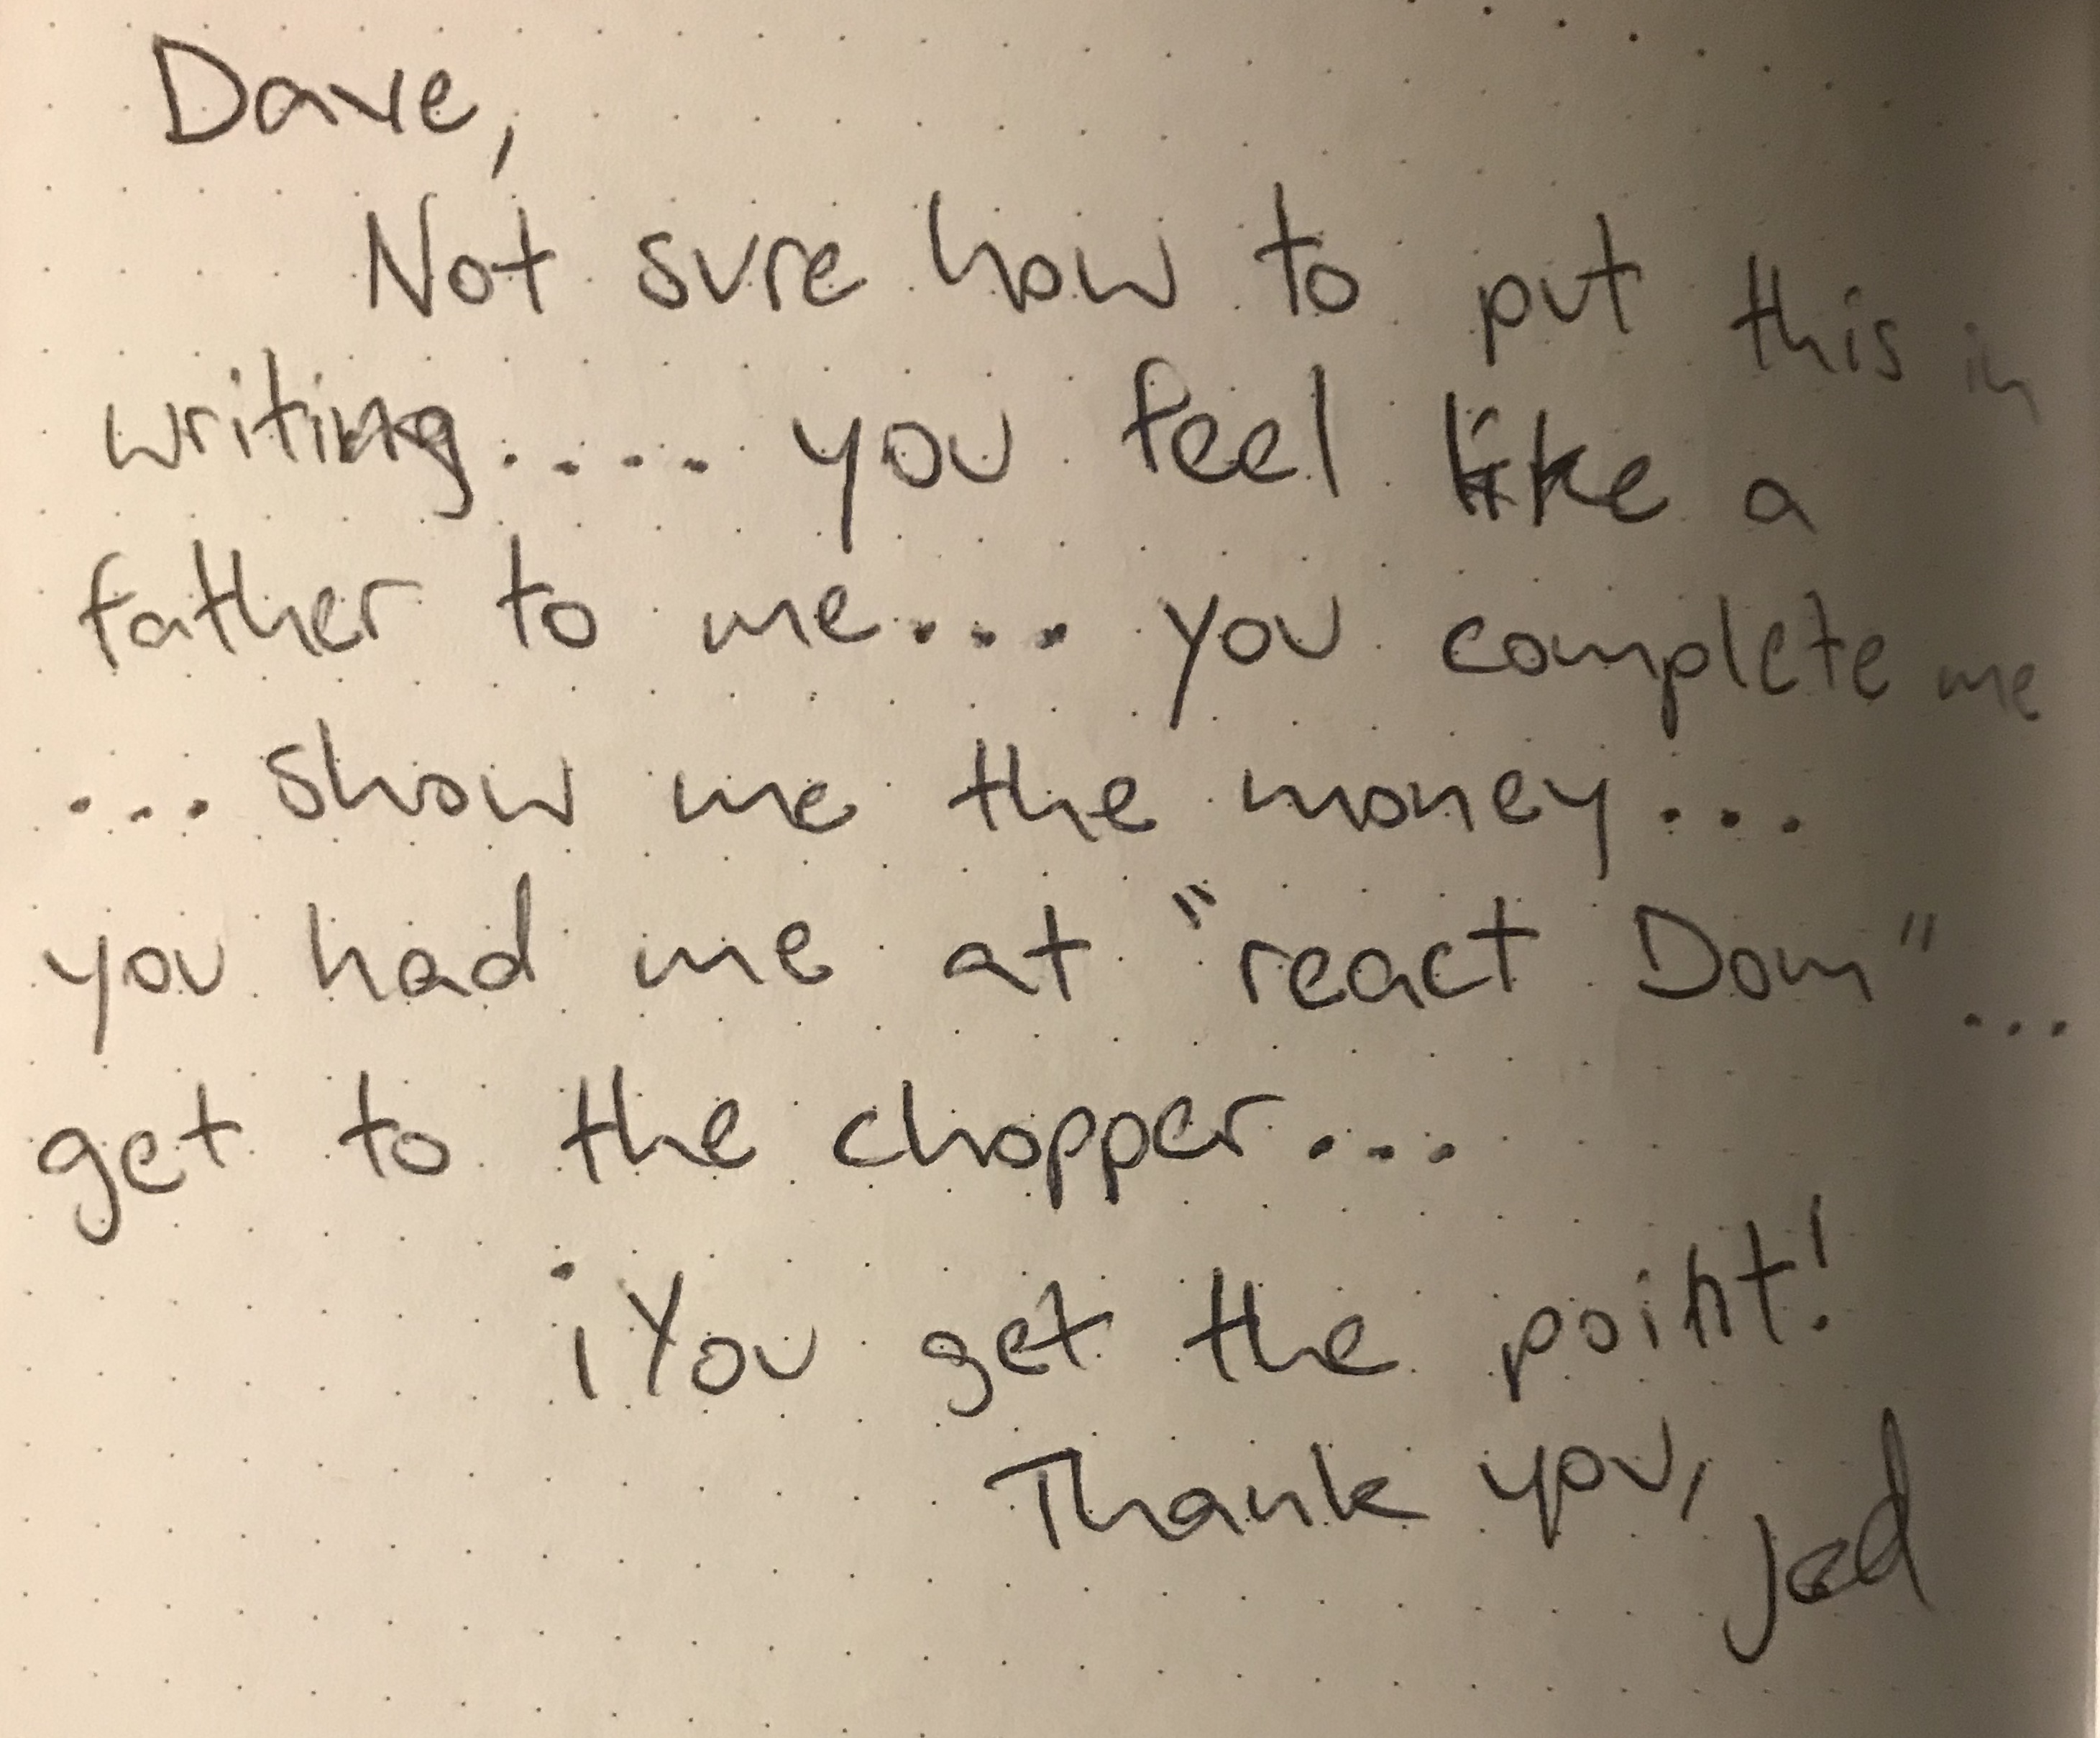 Dave,
Not sure how to put this in
writing.... you feel like a
father to me... you complete me
... show me the money...
you had me at "react Dom"...
get to the chopper...
¡You get the point!
Thank you,
Jed